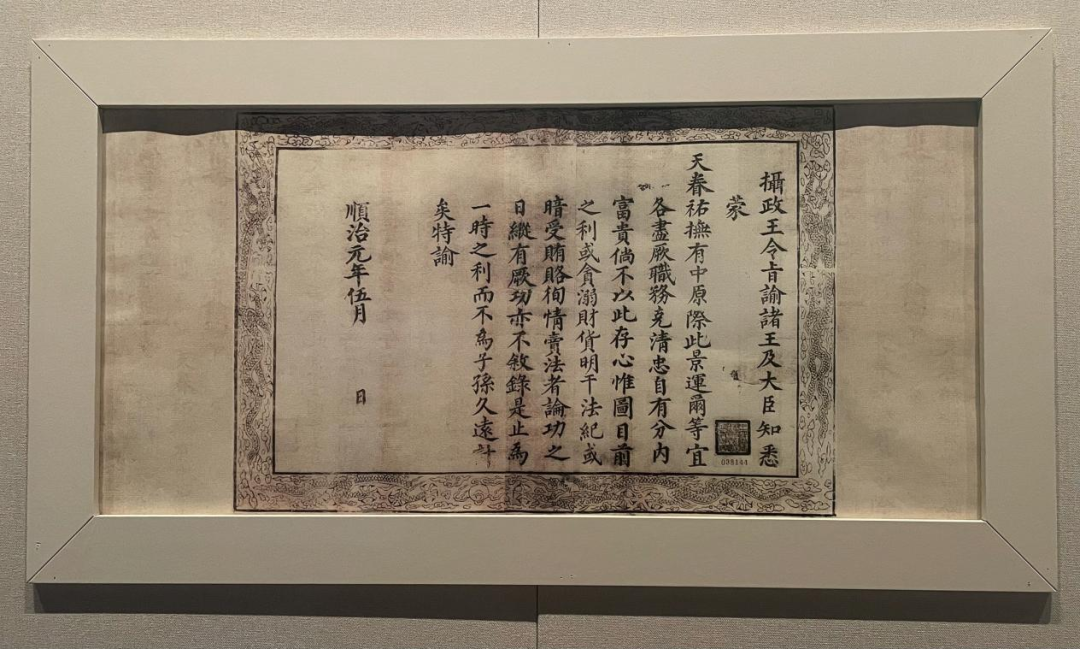 攝政王令旨諭諸王及大臣知悉
蒙
天眷祐撫有中原際此景運爾等宜
各盡厥職務克清忠自有分內
富貴倘不以此存心惟圖目前
之利或貪溺財貨明干法紀或
暗受賄賂徇情賣法者論功之
日縱有厥功亦不敘錄是止為
一時之利而不為子孫久遠計
矣特諭
順治元年伍月　　日
008144